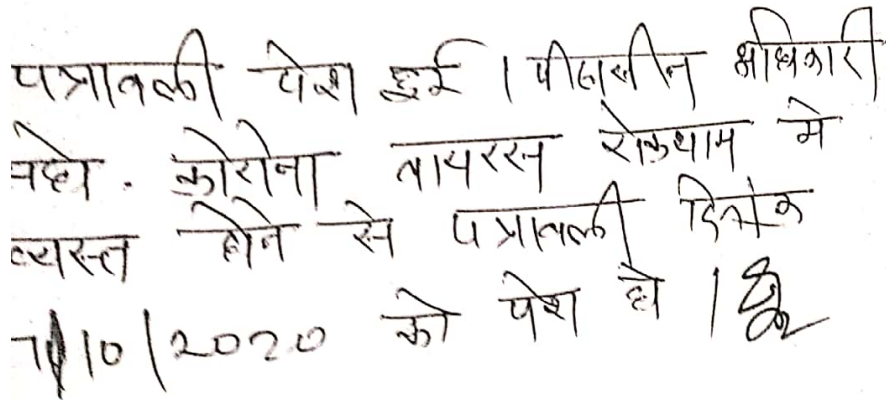 पत्रावली पेश हुई । पीठासीन अधिकारी
कोरोना वायरस रोकथाम मे
व्यस्त होने से पत्रावली दिनांक
/10/2020 को पेश हो ।